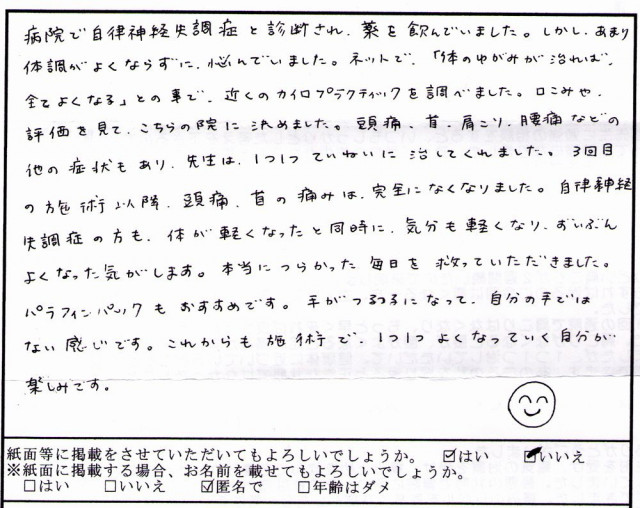 病院で自律神経失調症と診断され、薬を飲んでいました。しかし、あまり
体調がよくならずに、悩んでいました。ネットで、「体のゆがみが治れば、
全てよくなる」との事で、近くのカイロプラクティックを調べました。口こみや、
評価を見て、こちらの院に決めました。頭痛、首、肩こり、腰痛などの
他の症状もあり、先生は、1つ1つていねいに治してくれました。3回目
の施術以降、頭痛、首の痛みは、完全になくなりました。自律神経
失調症の方も、体が軽くなったと同時に、気分も軽くなり、ずいぶん
よくなった気がします。本当につらかった毎日を救っていただきました。
パラフィンパックもおすすめです。手がつるつるになって、自分の手では
ない感じです。これからも施術で、1つ1つよくなっていく自分が
楽しみです。
紙面等に掲載をさせていただいてもよろしいでしょうか。 ☑はい ☑いいえ
※紙面に掲載する場合、お名前を載せてもよろしいでしょうか。
□はい □いいえ ☑匿名で □年齢はダメ